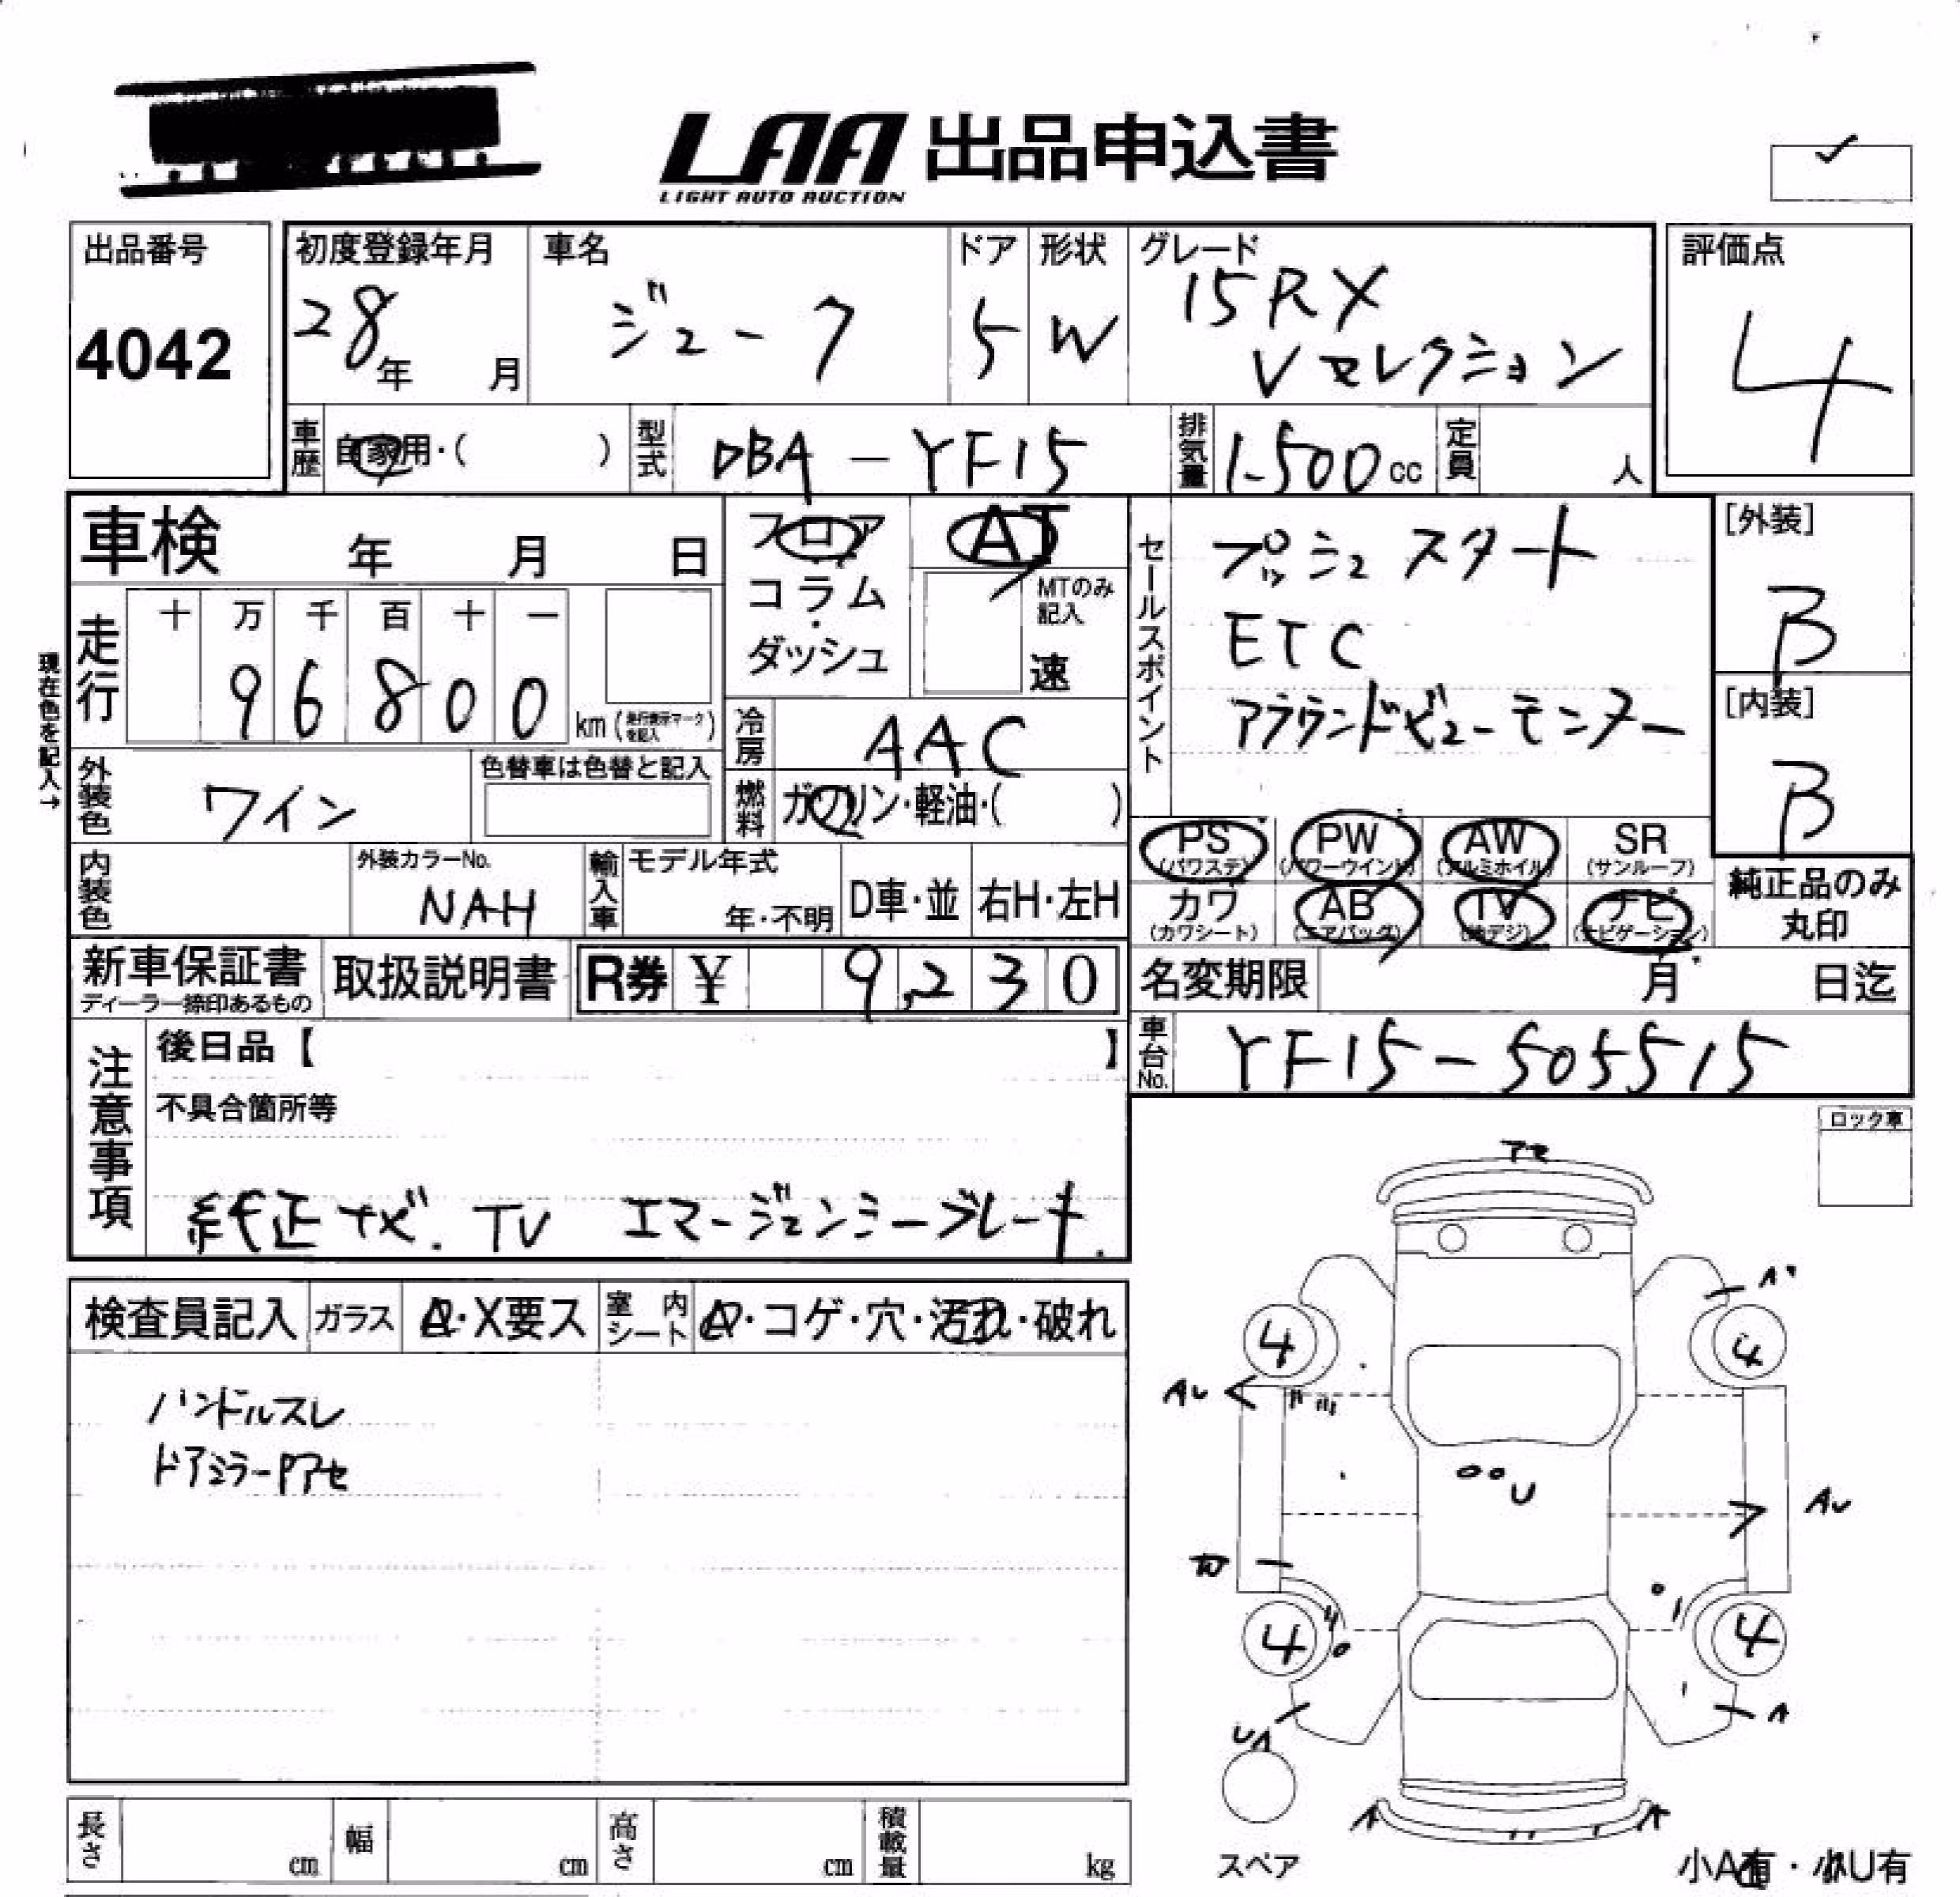 LAA 出品申込書
LIGHT AUTO AUCTION
出品番号
4042
初度登録年月
28年 月
車名
ジューク
ドア
5
形状
W
グレード
15RX
Vセレクション
評価点
4
車歴 自家用・( )
型式 DBA-YF15
排気量 1.500cc
定員 人
車検 年 月 日
フロア
コラム
・
ダッシュ
AT
MTのみ
記入
速
セールスポイント
プッシュスタート
ETC
アラウンドビューモニター
[外装]
B
[内装]
B
現在色を記入→
走行
十 万 千 百 十 一
9 6 8 0 0
km (走行表示マークを記入)
冷房 AAC
外装色 ワイン
色替車は色替と記入
燃料 ガソリン・軽油・( )
PS
(パワステ)
PW
(パワーウインド)
AW
(アルミホイル)
SR
(サンルーフ)
カワ
(カワシート)
AB
(エアバッグ)
TV
(地デジ)
ナビ
(ナビゲーション)
純正品のみ
丸印
内装色
外装カラーNo.
NAH
輸入車
モデル年式
年・不明
D車・並
右H・左H
新車保証書
ディーラー捺印あるもの
取扱説明書
R券 ¥ 9,230
名変期限 月 日迄
車台No. YF15-505515
注意事項
後日品【 】
不具合箇所等
純正ナビ.TV エマージェンシーブレーキ.
ロック車
検査員記入
ガラス
A・X要ス
室内シート
A・コゲ・穴・汚れ・破れ
ハンドルスレ
ドアミラーPアセ
アセ
A
4
4
AU
U
AU
4
4
UA
A
A
A
スペア
小A有・小U有
長さ cm
幅 cm
高さ cm
積載量 kg